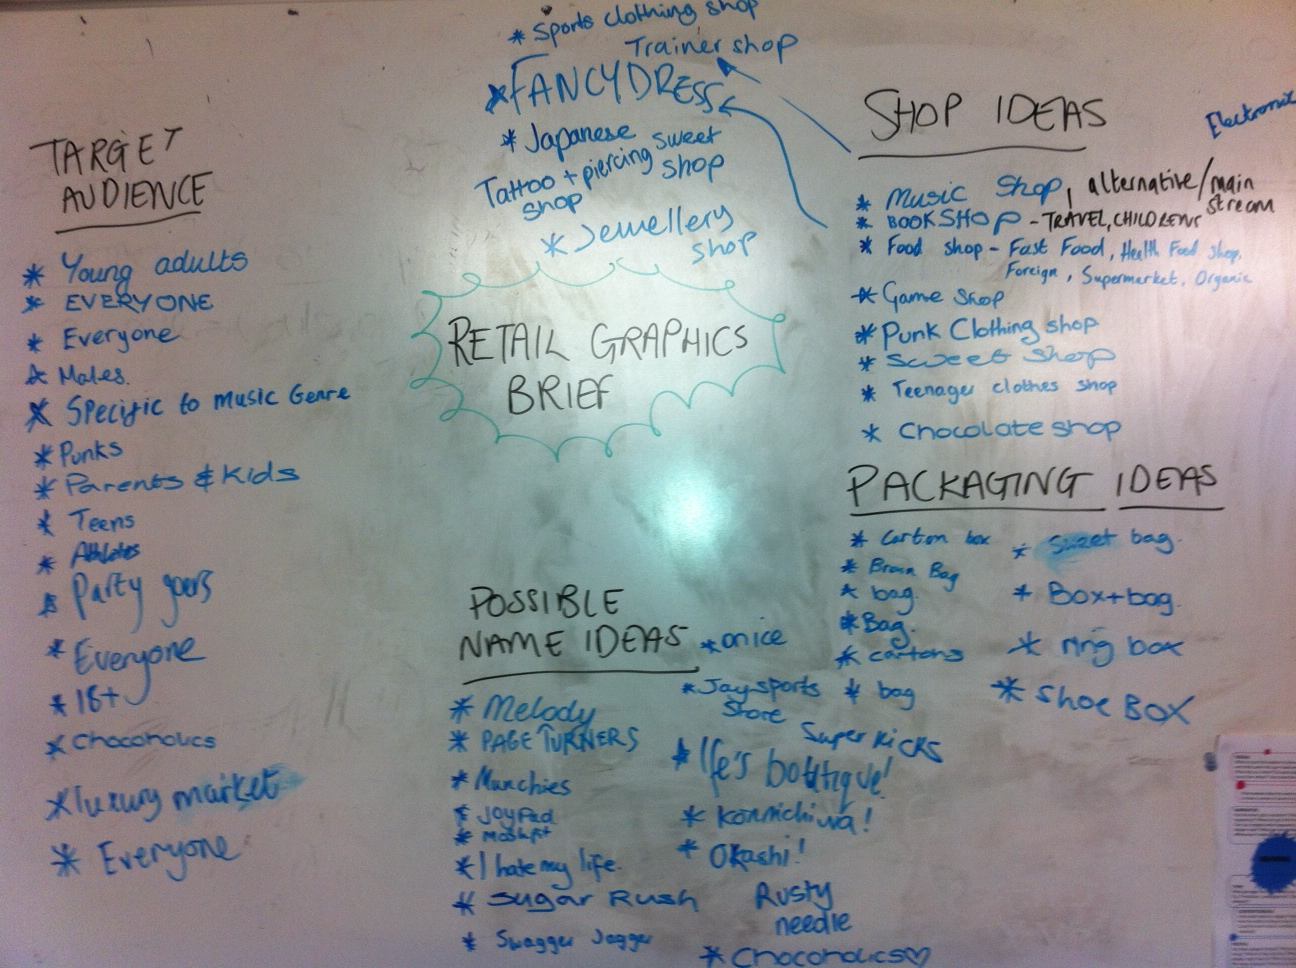 * Sports clothing shop
Trainer shop
* FANCYDRESS
* Japanese
sweet
shop
Tattoo + piercing
shop
* Jewellery
shop
TARGET
AUDIENCE
* Young adults
* EVERYONE
* Everyone
* Males.
* Specific to Music Genre
* Punks
* Parents & Kids
* Teens
* Athletes
* Party goers
* Everyone
* 18+
* Chocoholics
* luxury market
* Everyone
RETAIL GRAPHICS
BRIEF
SHOP IDEAS
Electronix
* Music Shop, alternative/main
stream
* BOOKSHOP - TRAVEL, CHILDRENS
* Food shop - Fast Food, Health Food shop,
Foreign, Supermarket, Organic
* Game Shop
* Punk Clothing shop
* Sweet Shop
* Teenager clothes shop
* Chocolate shop
PACKAGING IDEAS
* Carton box
* Brown Bag
* bag.
* Bag.
* cartons
* bag
* Sweet bag.
* Box+bag.
* ring box
* Shoe BOX
POSSIBLE
NAME IDEAS
* Melody
* PAGE TURNERS
* Munchies
* Joypad
* Moshpit
* I hate my life.
* Sugar Rush
* Swagger Jagger
* onice
* Jaysports
Store
Super Kicks
* Ife's boutique!
* Konnichiwa!
* Okashi!
Rusty
needle
* Chocoholics♡